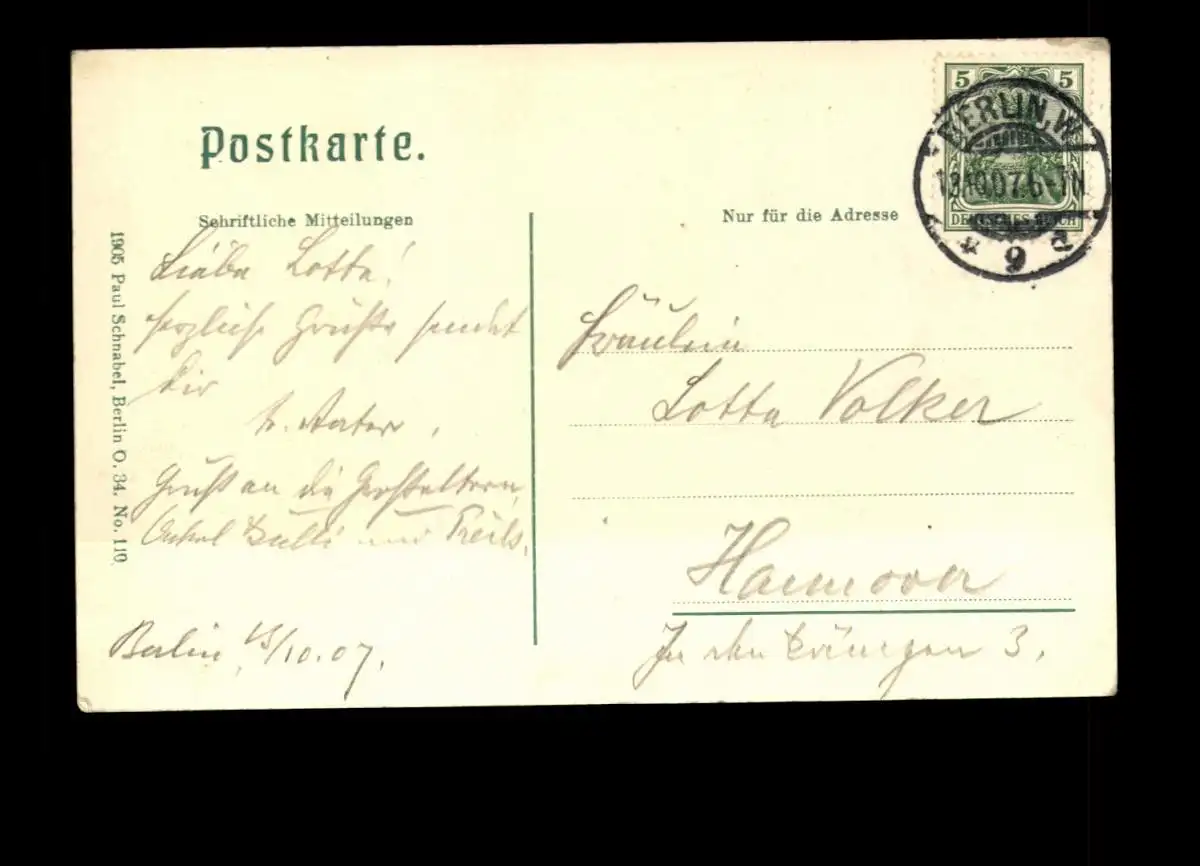 Postkarte.
Schriftliche Mitteilungen
Nur für die Adresse
5 5
DEUTSCHES REICH
BERLIN, W.
13.10.07.6-7N
* 9 d
1905 Paul Schnabel, Berlin O. 34. No. 110
Liebe Lotte!
herzliche Grüße sendet
Dir
Gruß an die Großeltern,
Onkel und
Berlin, 13/10.07.
Fräulein
Lotte Volker
Hannover
In den 3.